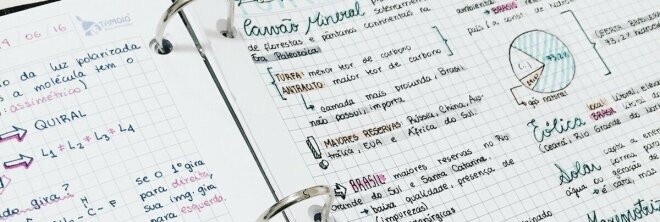 9 06 16
TAMOIO
o da luz polarizada
s a molécula tem o
assimétrico)
QUIRAL
L1 ≠ L2 ≠ L3 ≠ L4
gira?
H - C - F
se o 1º gira
para direita,
sua img. gira
para esquerda.
Carvão Mineral
de florestas e pântanos continentais na
Era Paleozoica
TURFA menor teor de carbono
ANTRACITO maior teor de carbono
camada mais profunda, Brasil
não possui, importa
MAIORES RESERVAS: Rússia, China, Aus-
trália, EUA e África do Sul.
BRASIL: maiores reservas no Rio
Grande do Sul e Santa Catarina.
baixa qualidade, presença de
(impurezas)
ambiental
BRASIL
gás natural
Eólica
local
BRASIL
(Ceará, Rio Grande do
Solar
custa a
forma para
água ou geração de
é cara, mas
Maremotriz